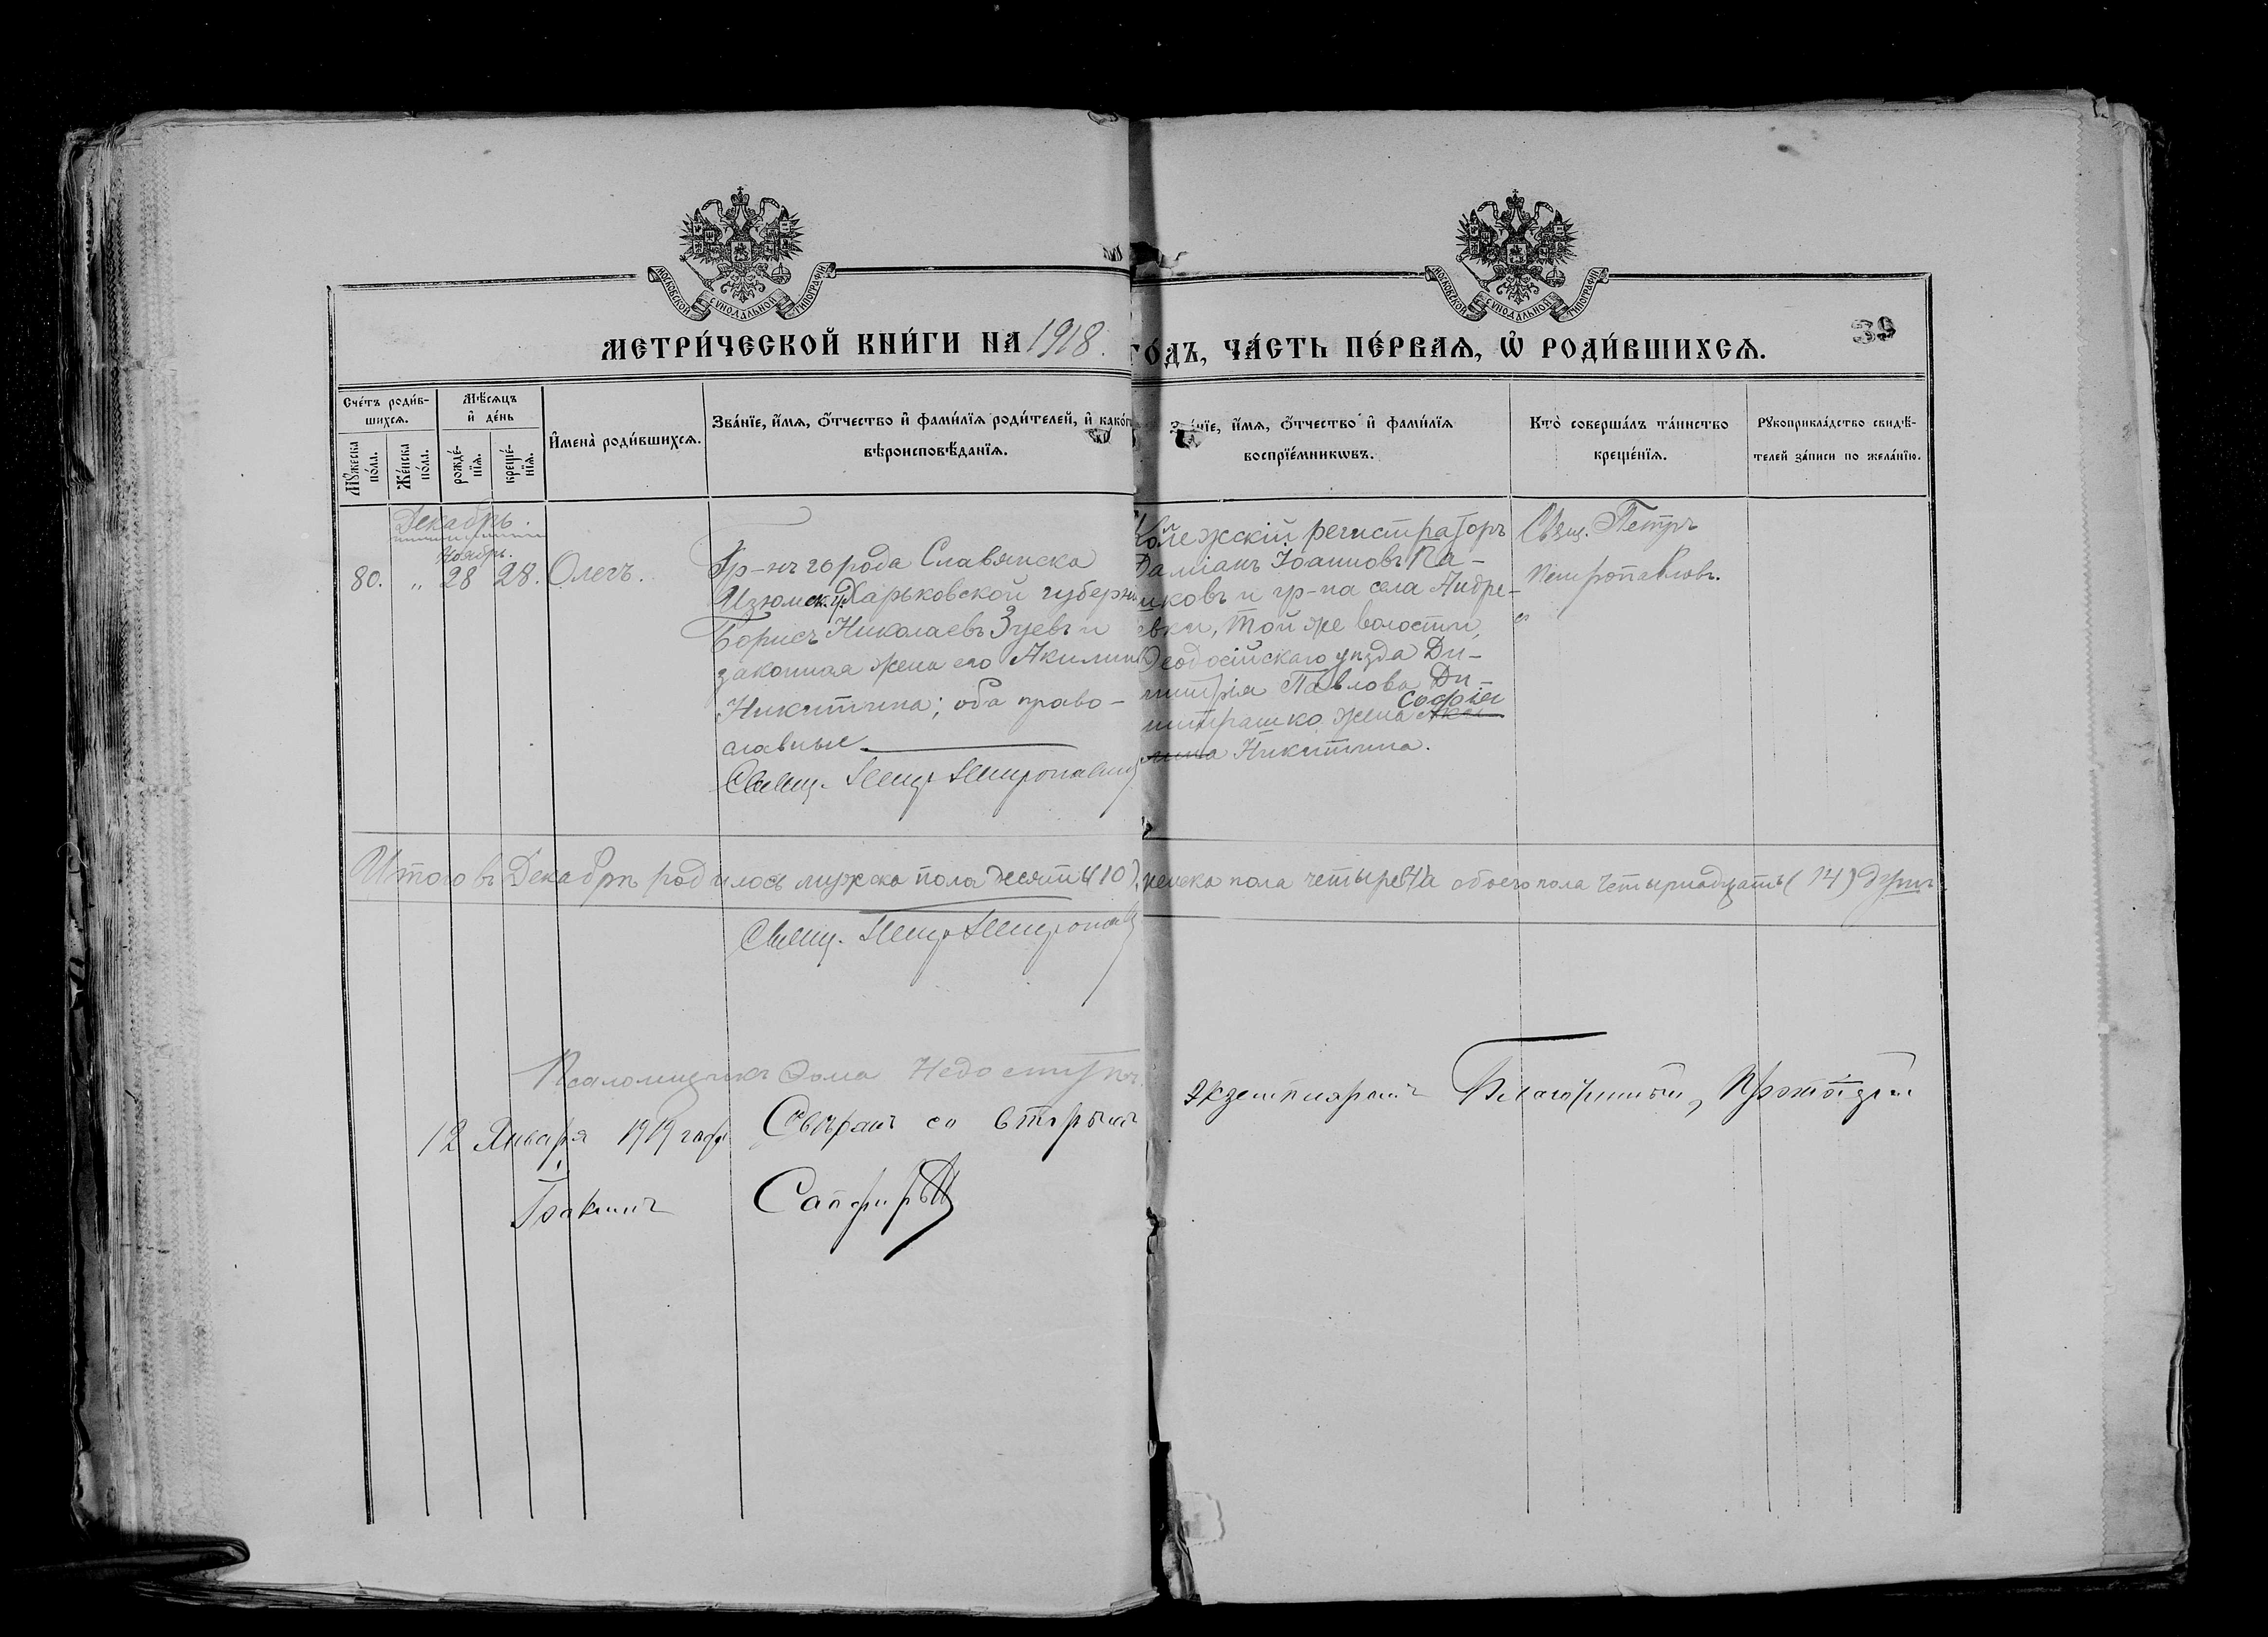 МОСКОВСКОЙ СѴНОДАЛЬНОЙ ТИПОГРАФІИ
МОСКОВСКОЙ СѴНОДАЛЬНОЙ ТИПОГРАФІИ
МЕТРИ́ЧЕСКОЙ КНИ́ГИ НА 1918. ГО́ДЪ, ЧА́СТЬ ПЕ́РВАѦ, Ѡ҆ РОДИ́ВШИХСѦ.
39
Сче́тъ роди́в-
шихсѧ.
Мꙋ́жеска по́ла.
Же́нска по́ла.
Мѣ́сѧцъ
и҆ де́нь
рожде́-
нїѧ.
креще́-
нїѧ.
И҆мена̀ роди́вшихсѧ.
Зва́нїе, и҆́мѧ, ѻ҆́тчество и҆ фамѝлїѧ роди́телей, и҆ како́гѡ
вѣроисповѣ́данїѧ.
Зва́нїе, и҆́мѧ, ѻ҆́тчество и҆ фамѝлїѧ
воспрїе́мникѡвъ.
Кто̀ соверша́лъ та́инство
креще́нїѧ.
Рꙋкоприкла́дство свидѣ́-
телей за́писи по жела́нїю.
Декабрь.
Ноябрь.
80. „ 28 28. Олегъ.
Гр-нъ города Славянска
Изюмск. у. Харьковской губерніи
Борисъ Николаевъ Зуевъ и
законная жена его Акилина
Никитина; оба право-
славные
Свящ. Петръ Петропавловъ
Коллежскій регистраторъ
Даміанъ Іоанновъ Па-
ковъ и гр-на села Андре-
евки, той же волости,
Ѳеодосійскаго уѣзда Ди-
митрія Павлова Ди-
митрашко жена Софія
Никитина.
Свящ. Петръ
Петропавловъ.
Итого въ Декабрѣ родилось мужска пола десять (10), женска пола четыре (4) а обоего пола четырнадцать (14) душъ
Свящ. Петръ Петропавловъ
Псаломщикъ Ѳома Недоступъ.
12 Января 1919 года Свѣрялъ со вторымъ экземпляромъ Благочинный, Протоіерей
Іоакимъ Сапфир